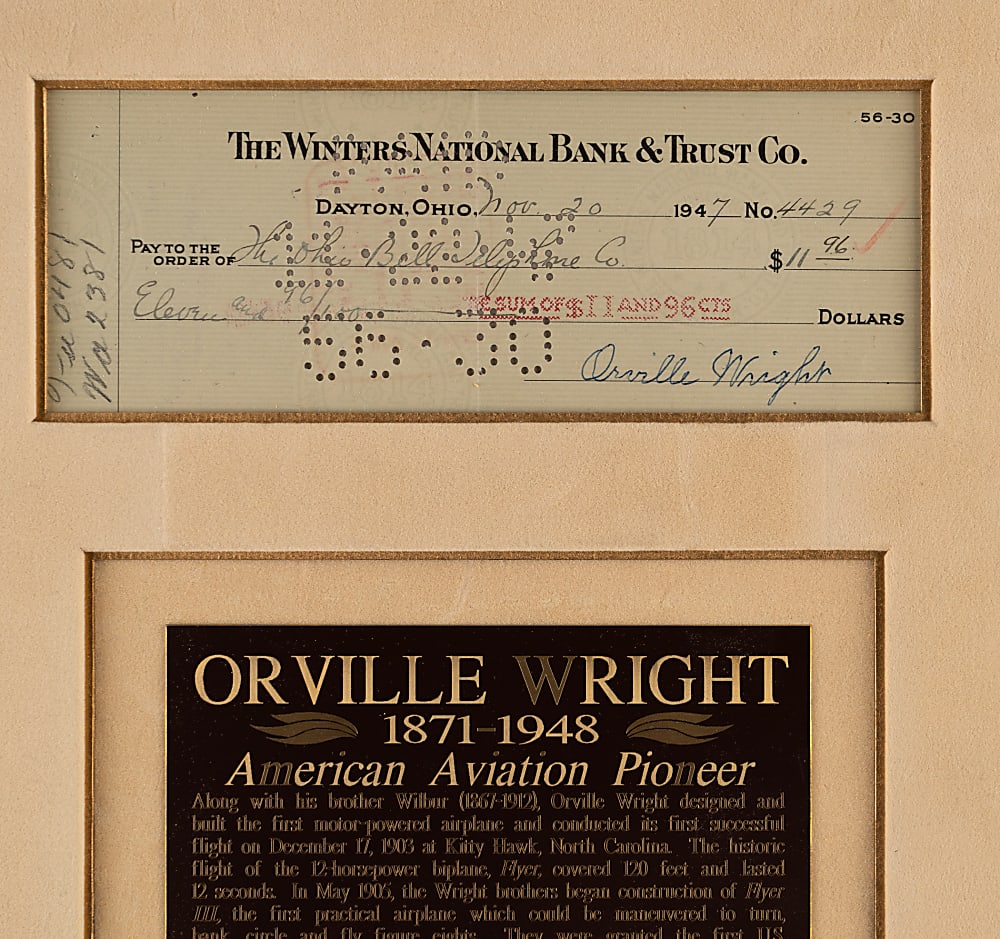 56-30
THE WINTERS NATIONAL BANK & TRUST CO.
DAYTON, OHIO, Nov. 20 1947 No. 4429
PAY TO THE
ORDER OF The Ohio Bell Telephone Co. $11 96
Eleven and 96/100 THE SUM OF $11 AND 96 CTS DOLLARS
56-30
Orville Wright
Wa 2381
ORVILLE WRIGHT
1871-1948
American Aviation Pioneer
Along with his brother Wilbur (1867-1912), Orville Wright designed and
built the first motor-powered airplane and conducted its first successful
flight on December 17, 1903 at Kitty Hawk, North Carolina. The historic
flight of the 12-horsepower biplane, Flyer, covered 120 feet and lasted
12 seconds. In May 1905, the Wright brothers began construction of Flyer
III, the first practical airplane which could be maneuvered to turn,
bank, circle and fly figure eights. They were granted the first U.S.